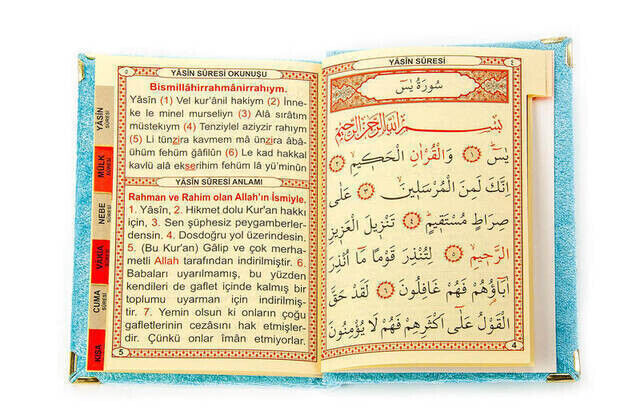 YÂSÎN SÛRESİ
٤
سُورَةُ يٰسٓ
بِسْمِ اللّٰهِ الرَّحْمٰنِ الرَّحِيمِ
يٰسٓ ﴿١﴾ وَالْقُرْاٰنِ الْحَكِيمِ ﴿٢﴾
اِنَّكَ لَمِنَ الْمُرْسَلِينَ ﴿٣﴾ عَلٰى
صِرَاطٍ مُسْتَقِيمٍ ﴿٤﴾ تَنْزِيلَ الْعَزِيزِ
الرَّحِيمِ ﴿٥﴾ لِتُنْذِرَ قَوْمًا مَٓا اُنْذِرَ
اٰبَٓاؤُهُمْ فَهُمْ غَافِلُونَ ﴿٦﴾ لَقَدْ حَقَّ
الْقَوْلُ عَلٰٓى اَكْثَرِهِمْ فَهُمْ لَا يُؤْمِنُونَ
4
٥
YÂSÎN SÛRESİ OKUNUŞU
Bismillâhirrahmânirrahıym.
Yâsîn (1) Vel kur'ânil hakiym (2) İnne-
ke le minel murseliyn (3) Alâ sırâtım
müstekıym (4) Tenziylel aziyzir rahıym
(5) Li tünzira kavmem mâ ünzira âbâ-
ühüm fehüm ğâfilûn (6) Le kad hakkal
kavlü alâ ekserihim fehüm lâ yü'minûn
YÂSÎN SÛRESİ ANLAMI
Rahman ve Rahim olan Allah'ın İsmiyle.
1. Yâsîn, 2. Hikmet dolu Kur'an hakkı
için, 3. Sen şüphesiz peygamberler-
densin. 4. Dosdoğru yol üzerindesin.
5. (Bu Kur'an) Gâlip ve çok merha-
metli Allah tarafından indirilmiştir. 6.
Babaları uyarılmamış, bu yüzden
kendileri de gaflet içinde kalmış bir
toplumu uyarman için indirilmiş-
tir. 7. Yemin olsun ki onların çoğu
gafletlerinin cezâsını hak etmişler-
dir. Çünkü onlar îman etmiyorlar.
5
YÂSÎN
SÛRESİ
MÜLK
SÛRESİ
NEBE
SÛRESİ
VÂKIA
SÛRESİ
CUMA
SÛRESİ
KISA